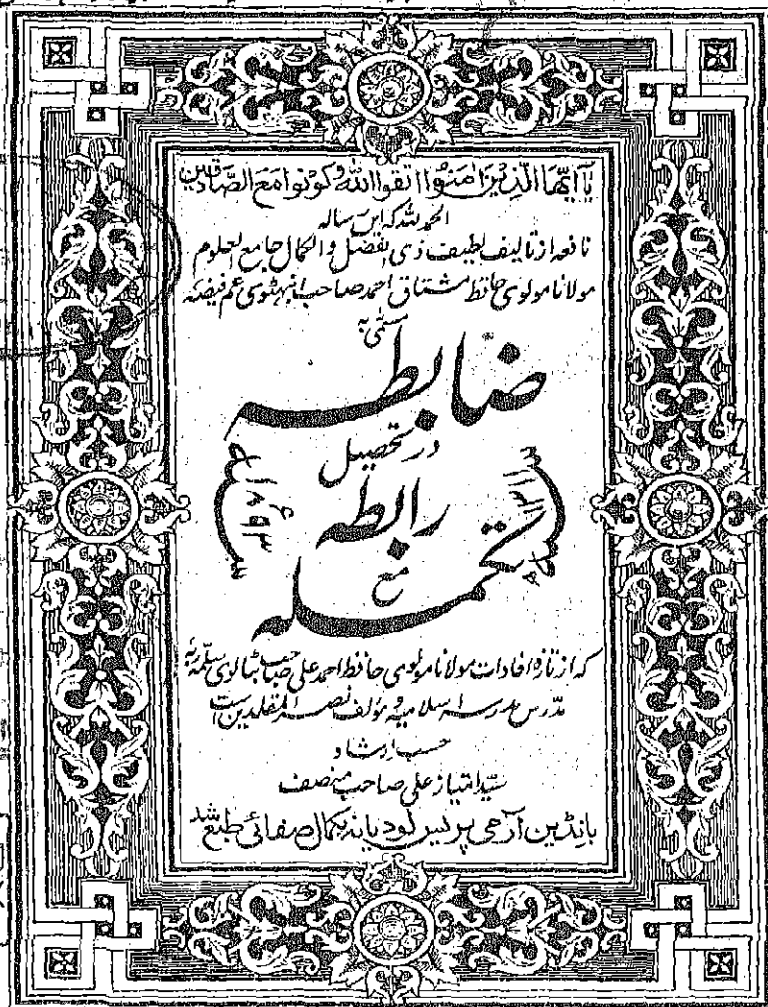 یَآ اَیُّهَا الَّذِیْنَ اٰمَنُوْا اتَّقُوا اللّٰهَ وَکُوْنُوْا مَعَ الصَّادِقِیْنَ
الحمد للہ کہ این رسالہ
نافعہ از تالیف لطیف ذی الفضل والکمال جامع العلوم
مولانا مولوی حافظ مشتاق احمد صاحب انبہٹوی عم فیضہ
مسمّٰی بہ
ضابطہ
در تحصیل
رابطہ
سنہ ۱۸۹۳ء
مع
تکملہ
کہ از تازہ افادات مولانا مولوی حافظ احمد علی صاحب بٹالوی سلّمہ ربّہ
مدّرس مدرسہ اسلامیہ و مؤلف نصر المقلدین است
حسب ارشاد
سیّد امتیاز علی صاحب منصف
بانڈین آرمی پریس لودیانہ بکمال صفائی طبع شد